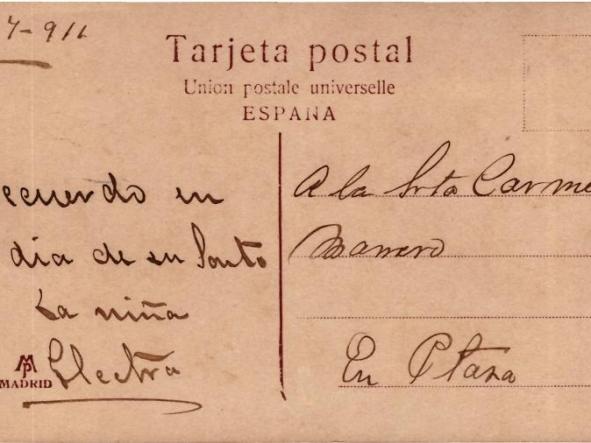 7-911
Tarjeta postal
Union postale universelle
ESPAÑA
ecuerdo en
dia de su Santo
La niña
Electra
MP
MADRID
A la Srta Carme
Marrero
En Ptana